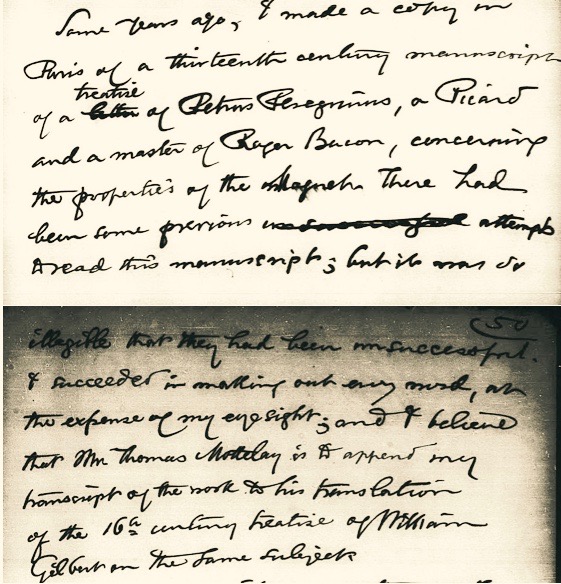 Some years ago, I made a copy in
Paris of a thirteenth century manuscript
treatise
of a letter of Petrus Peregrinus, a Picard
and a master of Roger Bacon, concerning
the properties of the Magnet. There had
been some previous unsuccessful attempts
to read this manuscript; but it was so
50
illegible that they had been unsuccessful.
I succeeded in making out every word, at
the expense of my eyesight; and I believe
that Mr Thomas Mottelay is to append my
transcript of the work to his translation
of the 16th century treatise of William
Gilbert on the same subject